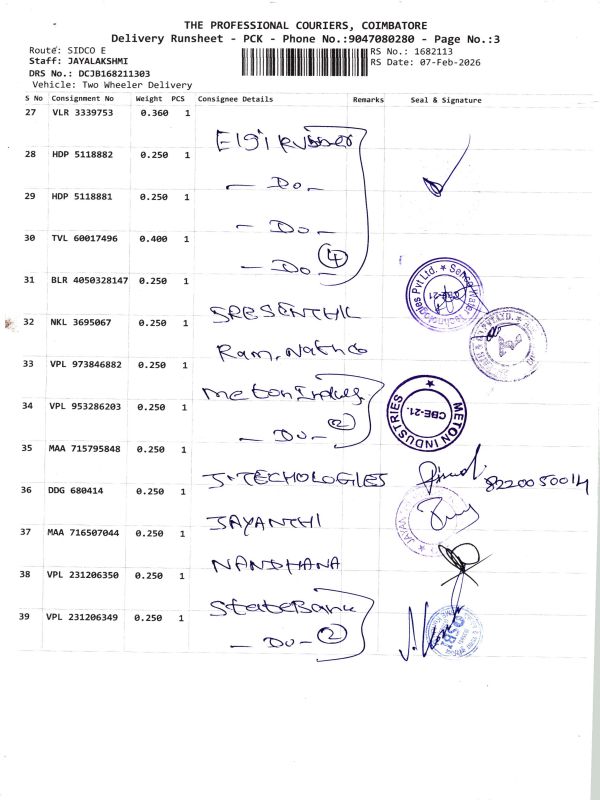 THE PROFESSIONAL COURIERS, COIMBATORE
Delivery Runsheet - PCK - Phone No.:9047080280 - Page No.:3
Route: SIDCO E
RS No.: 1682113
Staff: JAYALAKSHMI
RS Date: 07-Feb-2026
DRS No.: DCJB168211303
Vehicle: Two Wheeler Delivery
S No Consignment No Weight PCS Consignee Details Remarks Seal & Signature
27 VLR 3339753 0.360 1
Elgi Rubber
28 HDP 5118882 0.250 1
- Do -
29 HDP 5118881 0.250 1
- Do -
30 TVL 60017496 0.400 1
- Do - 4
31 BLR 4050328147 0.250 1
SRESENTHIL
32 NKL 3695067 0.250 1
Ram. Nathco
33 VPL 973846882 0.250 1
Meton Indus
34 VPL 953286203 0.250 1
- Do - 2
METON INDUSTRIES
CBE-21.
35 MAA 715795848 0.250 1
J-TECHOLOGIES
8220050014
36 DDG 680414 0.250 1
JAYANTHI
37 MAA 716507044 0.250 1
NANDHANA
38 VPL 231206350 0.250 1
StateBank
39 VPL 231206349 0.250 1
- Do - 2
SBI